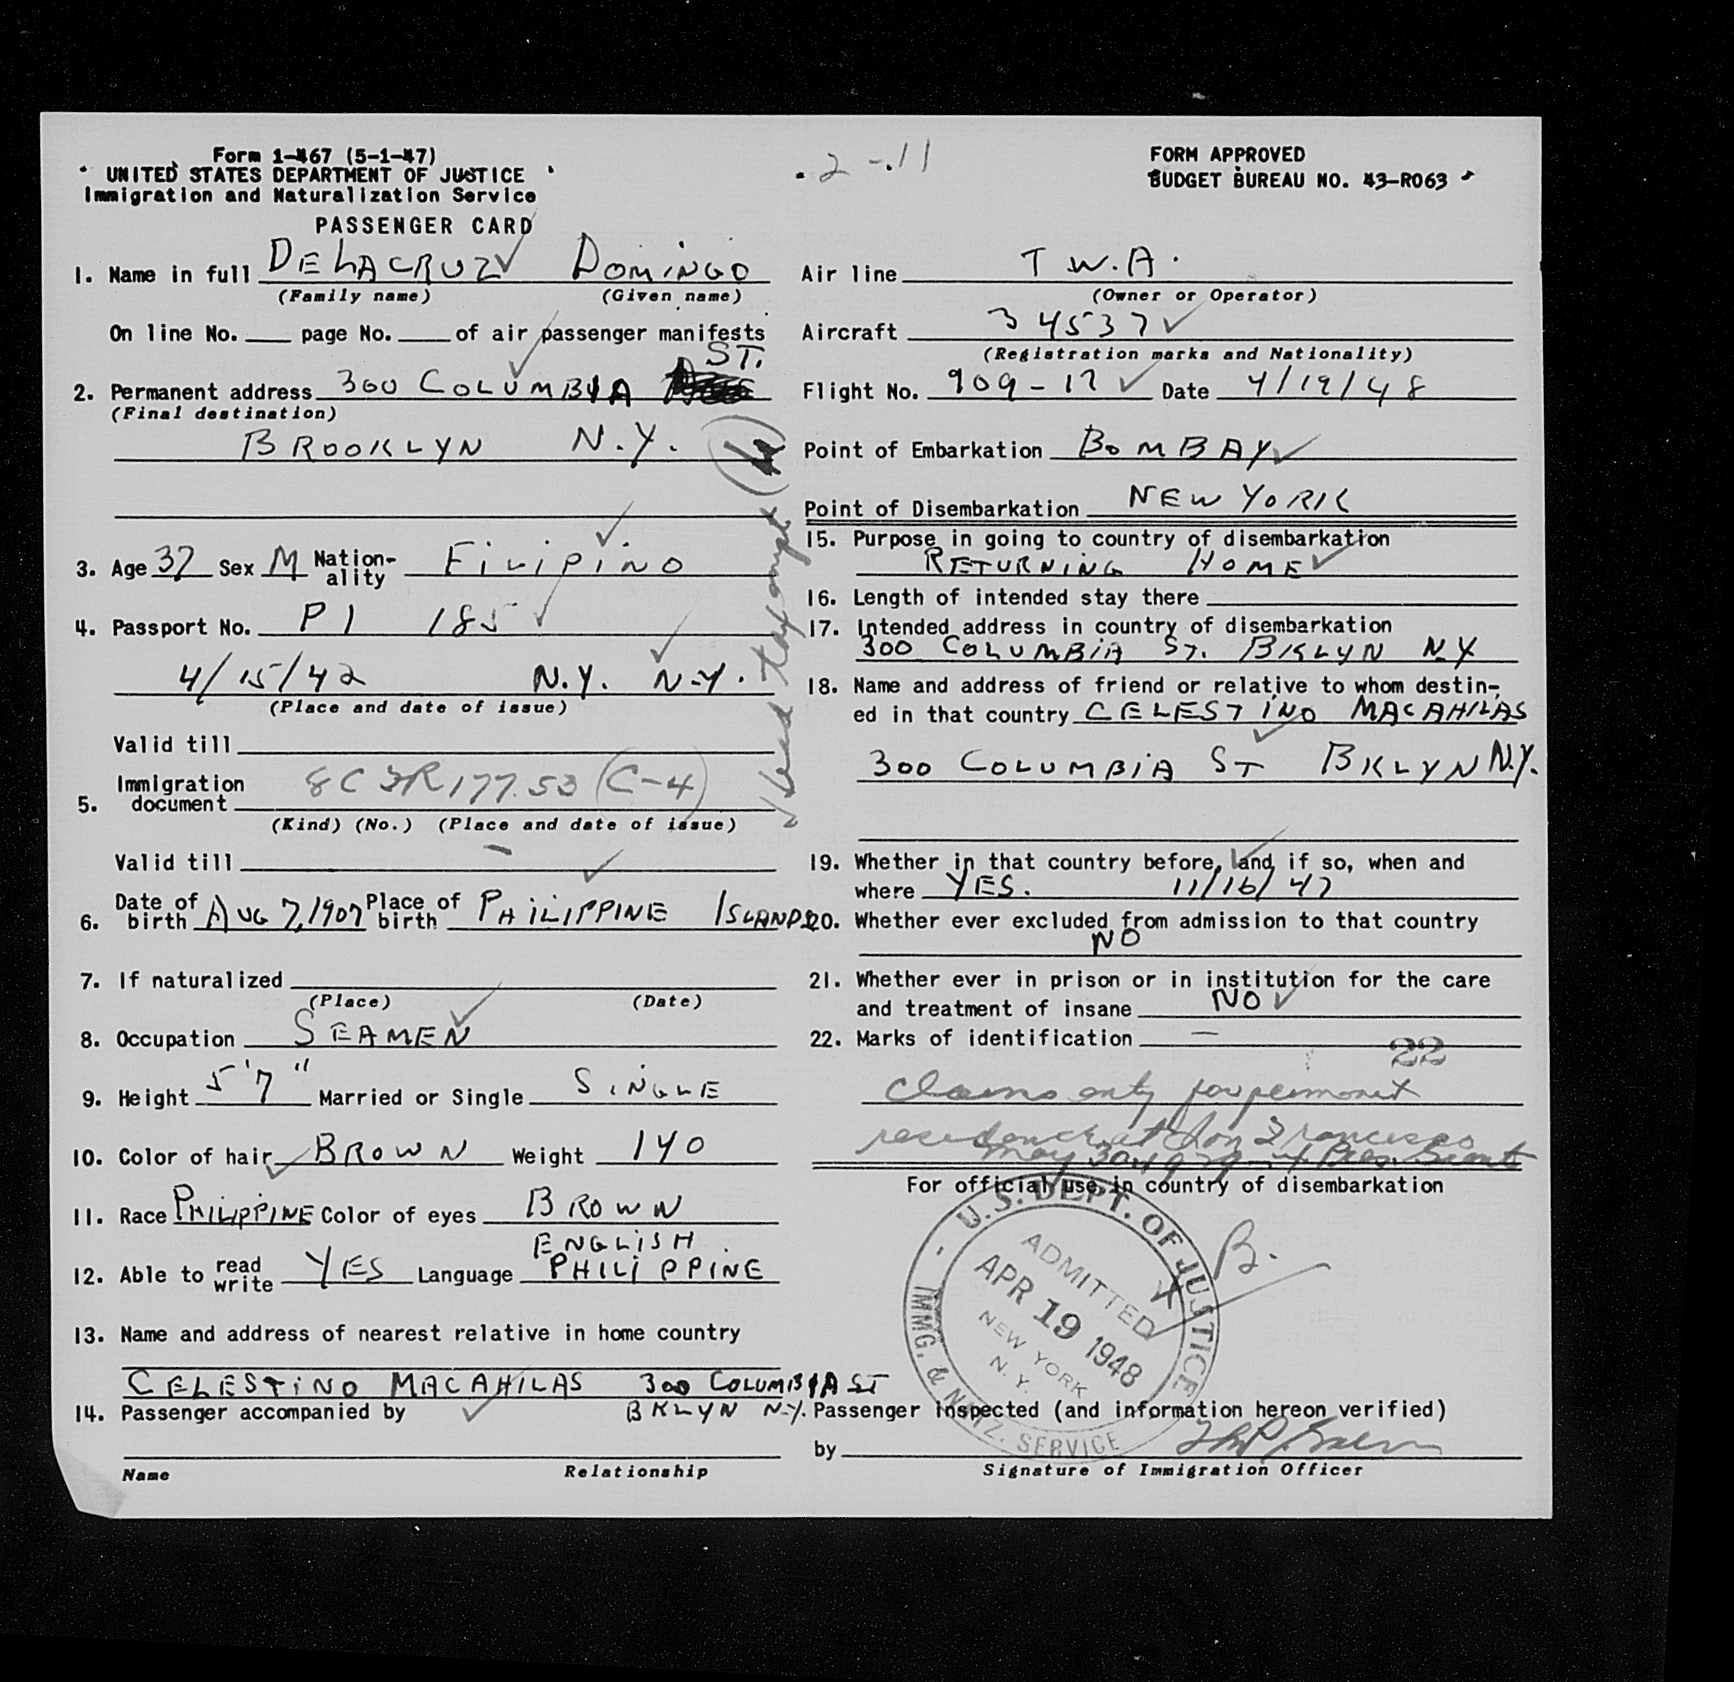 Form 1-467 (5-1-47)
UNITED STATES DEPARTMENT OF JUSTICE
Immigration and Naturalization Service
PASSENGER CARD
2-11
FORM APPROVED
BUDGET BUREAU NO. 43-R063
1. Name in full DELACRUZ DOMINGO
(Family name) (Given name)
On line No. page No. of air passenger manifests
2. Permanent address 300 COLUMBIA ST.
(Final destination)
BROOKLYN N.Y.
3. Age 37 Sex M Nation-ality FILIPINO
4. Passport No. PI 185
4/15/42 N.Y. N.Y.
(Place and date of issue)
Valid till
5. Immigration document 8 CFR 177.53 (C-4)
(Kind) (No.) (Place and date of issue)
Valid till
6. Date of birth AUG 7, 1907 Place of birth PHILIPPINE ISLANDS
7. If naturalized
(Place) (Date)
8. Occupation SEAMEN
9. Height 5'7" Married or Single SINGLE
10. Color of hair BROWN Weight 140
11. Race PHILIPPINE Color of eyes BROWN
ENGLISH
12. Able to read write YES Language PHILIPPINE
13. Name and address of nearest relative in home country
CELESTINO MACAHILAS 300 COLUMBIA ST
BKLYN N.Y.
14. Passenger accompanied by
Name Relationship
Head tax exempt
Air line T.W.A.
(Owner or Operator)
Aircraft 34537
(Registration marks and Nationality)
Flight No. 909-17 Date 4/19/48
Point of Embarkation BOMBAY
Point of Disembarkation NEW YORK
15. Purpose in going to country of disembarkation
RETURNING HOME
16. Length of intended stay there
17. Intended address in country of disembarkation
300 COLUMBIA ST. BKLYN N.Y
18. Name and address of friend or relative to whom destin-
ed in that country CELESTINO MACAHILAS
300 COLUMBIA ST BKLYN N.Y.
19. Whether in that country before, and if so, when and
where YES. 11/16/47
20. Whether ever excluded from admission to that country
NO
21. Whether ever in prison or in institution for the care
and treatment of insane NO
22. Marks of identification —
22
Claims entry for permanent
residence at San Francisco
May 30, Pres. Grant
For official use in country of disembarkation
U.S. DEPT. OF JUSTICE
ADMITTED
APR 19 1948
NEW YORK
N. Y.
IMMG. & NATZ. SERVICE
B.
Passenger inspected (and information hereon verified)
by
Signature of Immigration Officer